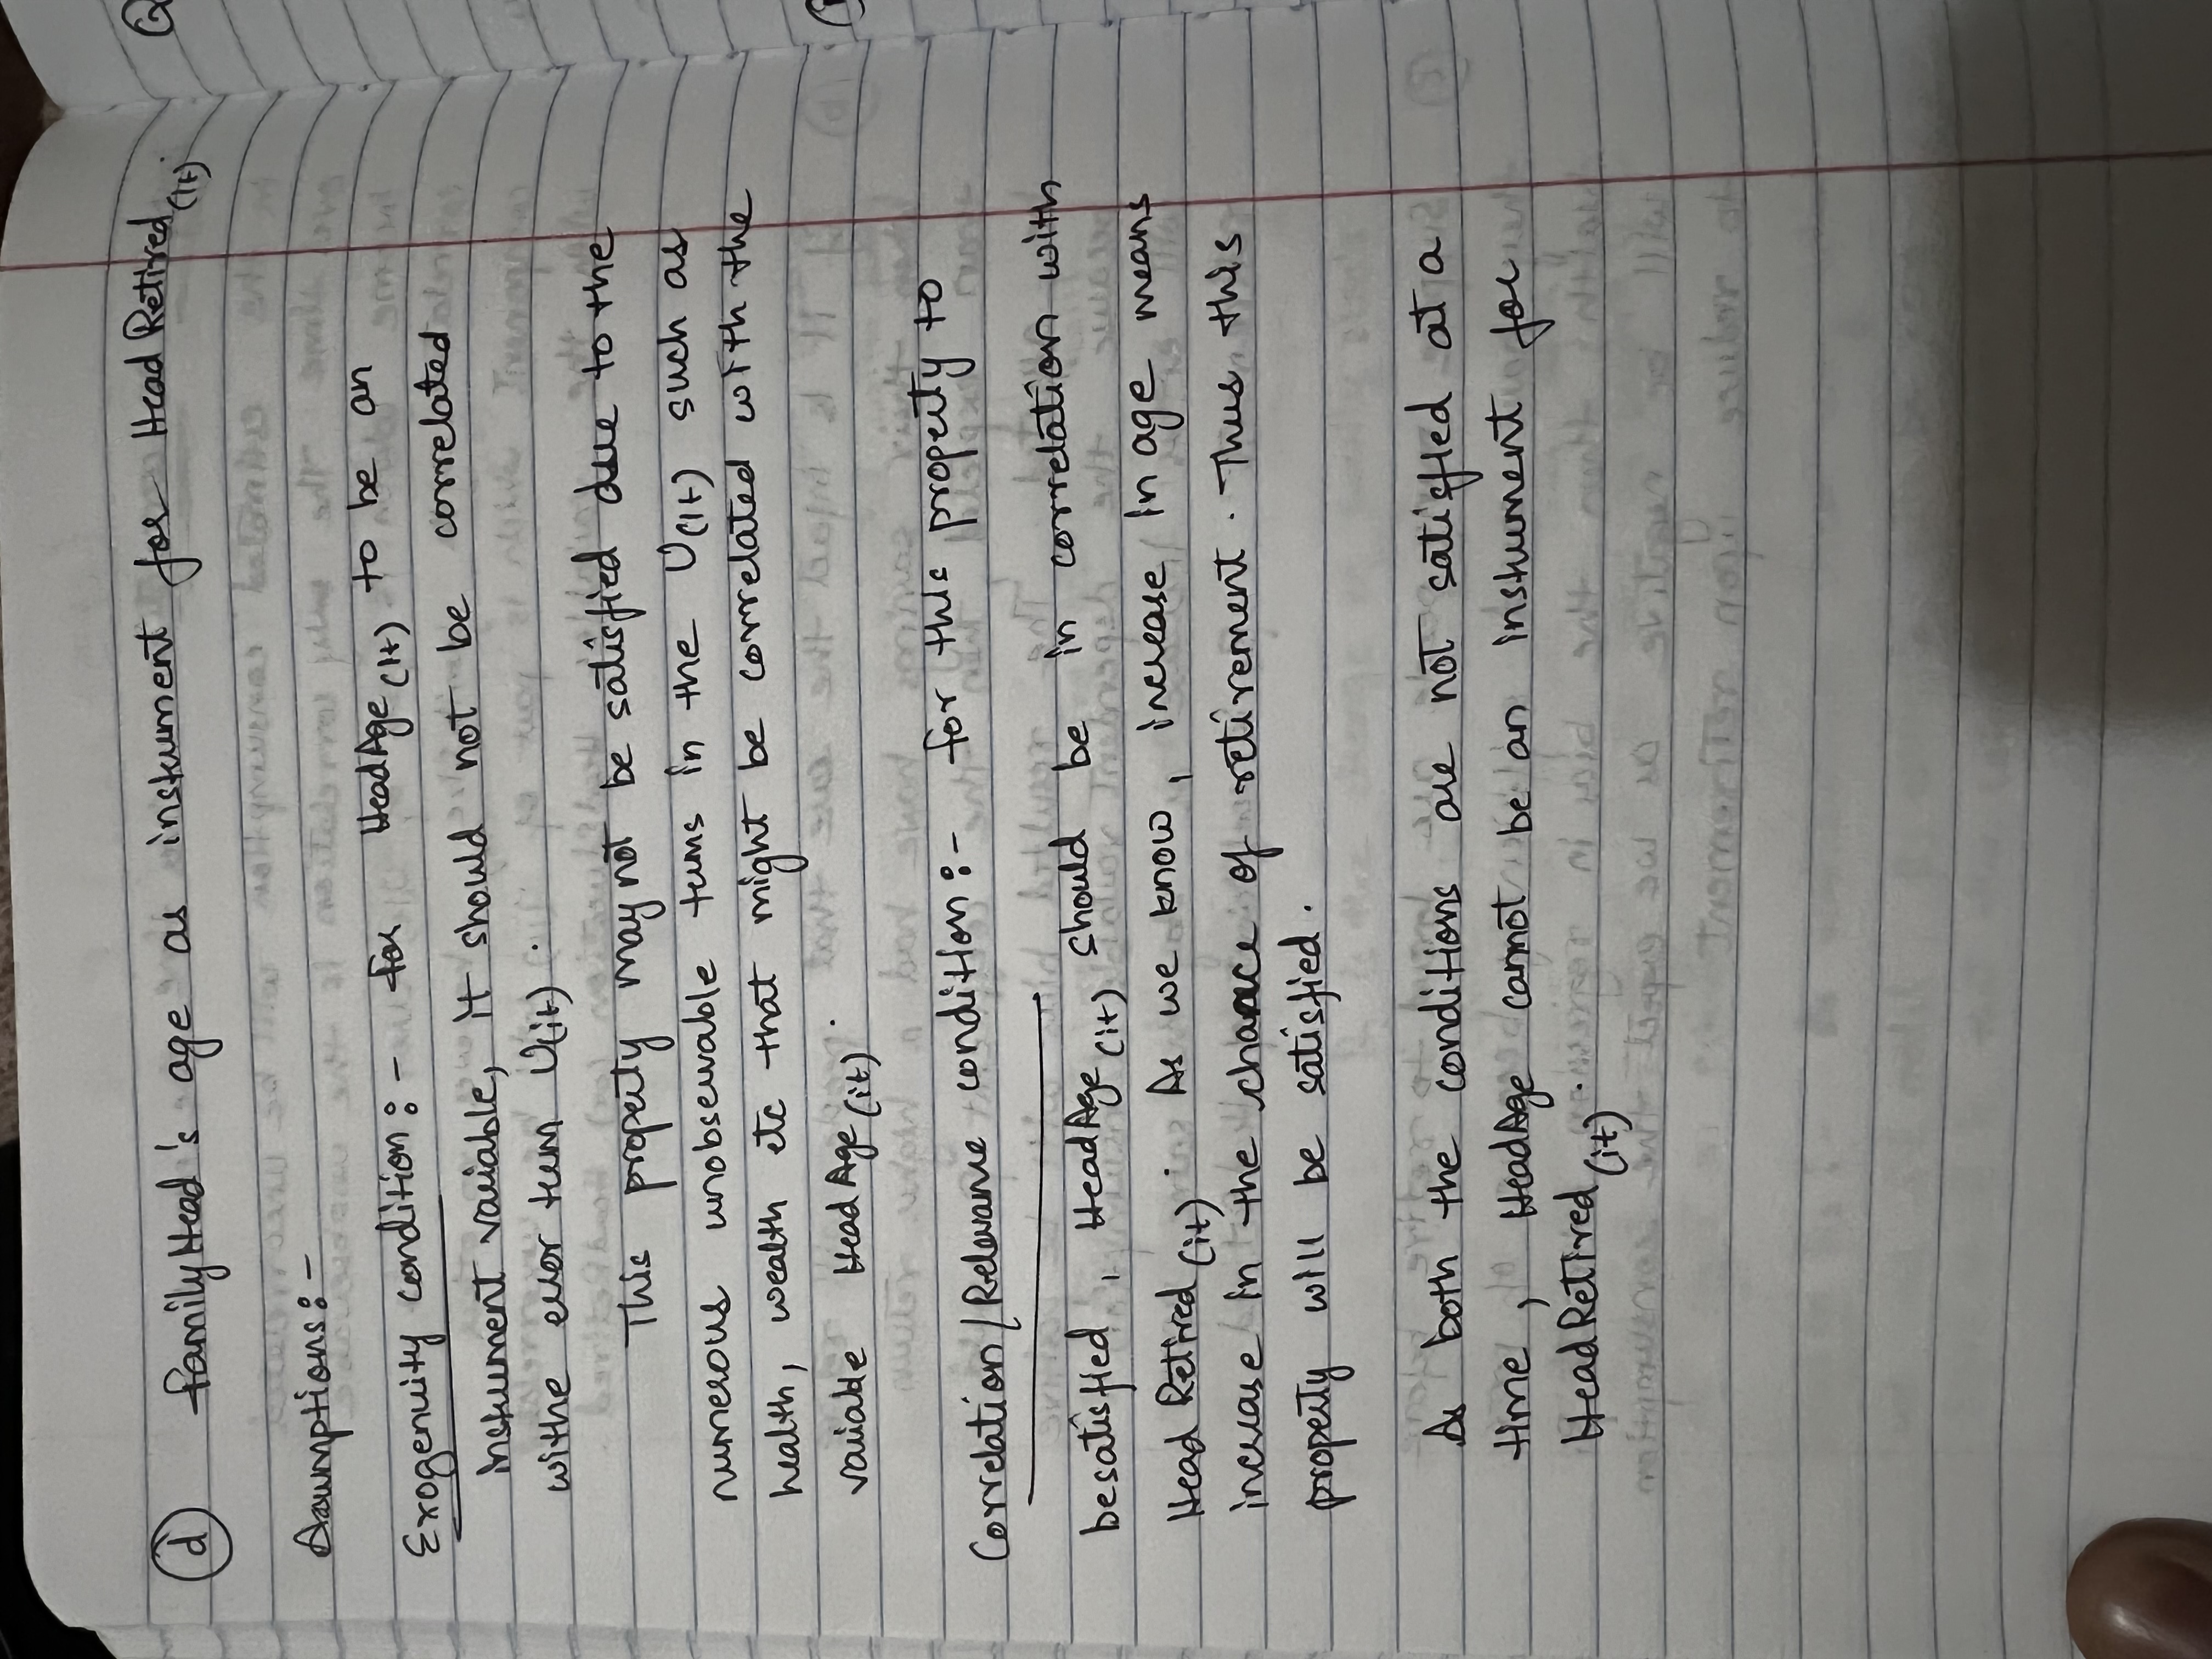 (d) FamilyHead's age as instrument for HeadRetired(it).
Assumptions:-
Exogenuity condition:- for HeadAge(it) to be an
instrument variable, it should not be correlated
withe error term U(it).
This property may not be satisfied due to the
numerous unobservable terms in the U(it) such as
health, wealth etc that might be correlated with the
variable HeadAge(it).
Correlation/Relevance condition:- for this property to
be satisfied, HeadAge(it) should be in correlation with
Head Retired(it). As we know, increase in age means
increase in the chance of retirement. Thus this
property will be satisfied.
As both the conditions are not satisfied at a
time, HeadAge cannot be an instrument for
HeadRetired(it).